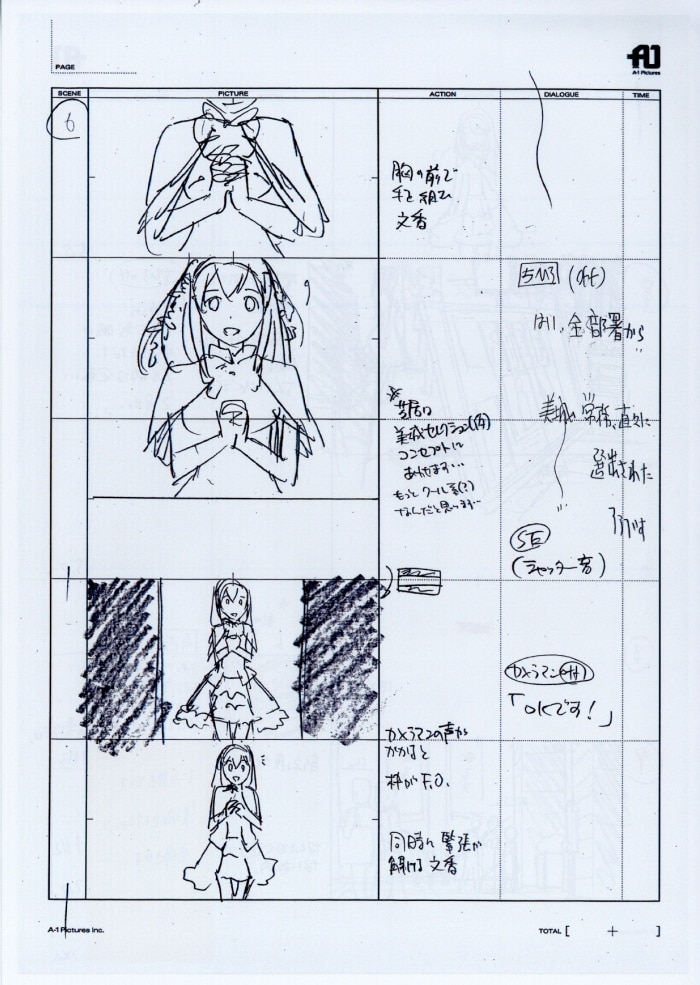 PAGE
A-1 Pictures
SCENE
PICTURE
ACTION
DIALOGUE
TIME
6
胸の前で
手を組む
文香
ちひろ (off)
はい、全部署から
美城常務、直々に
選出された
※芝居は
美城セレクション
コンセプトに
あわせます…
もっとクール系(?)
なんだと思います…
SE
(シャッター音)
カメラマン(off)
「OKです!」
カメラマンの声が
かかると
枠がF.O.
同時に緊張が
解ける文香
A-1 Pictures Inc.
TOTAL [ + ]